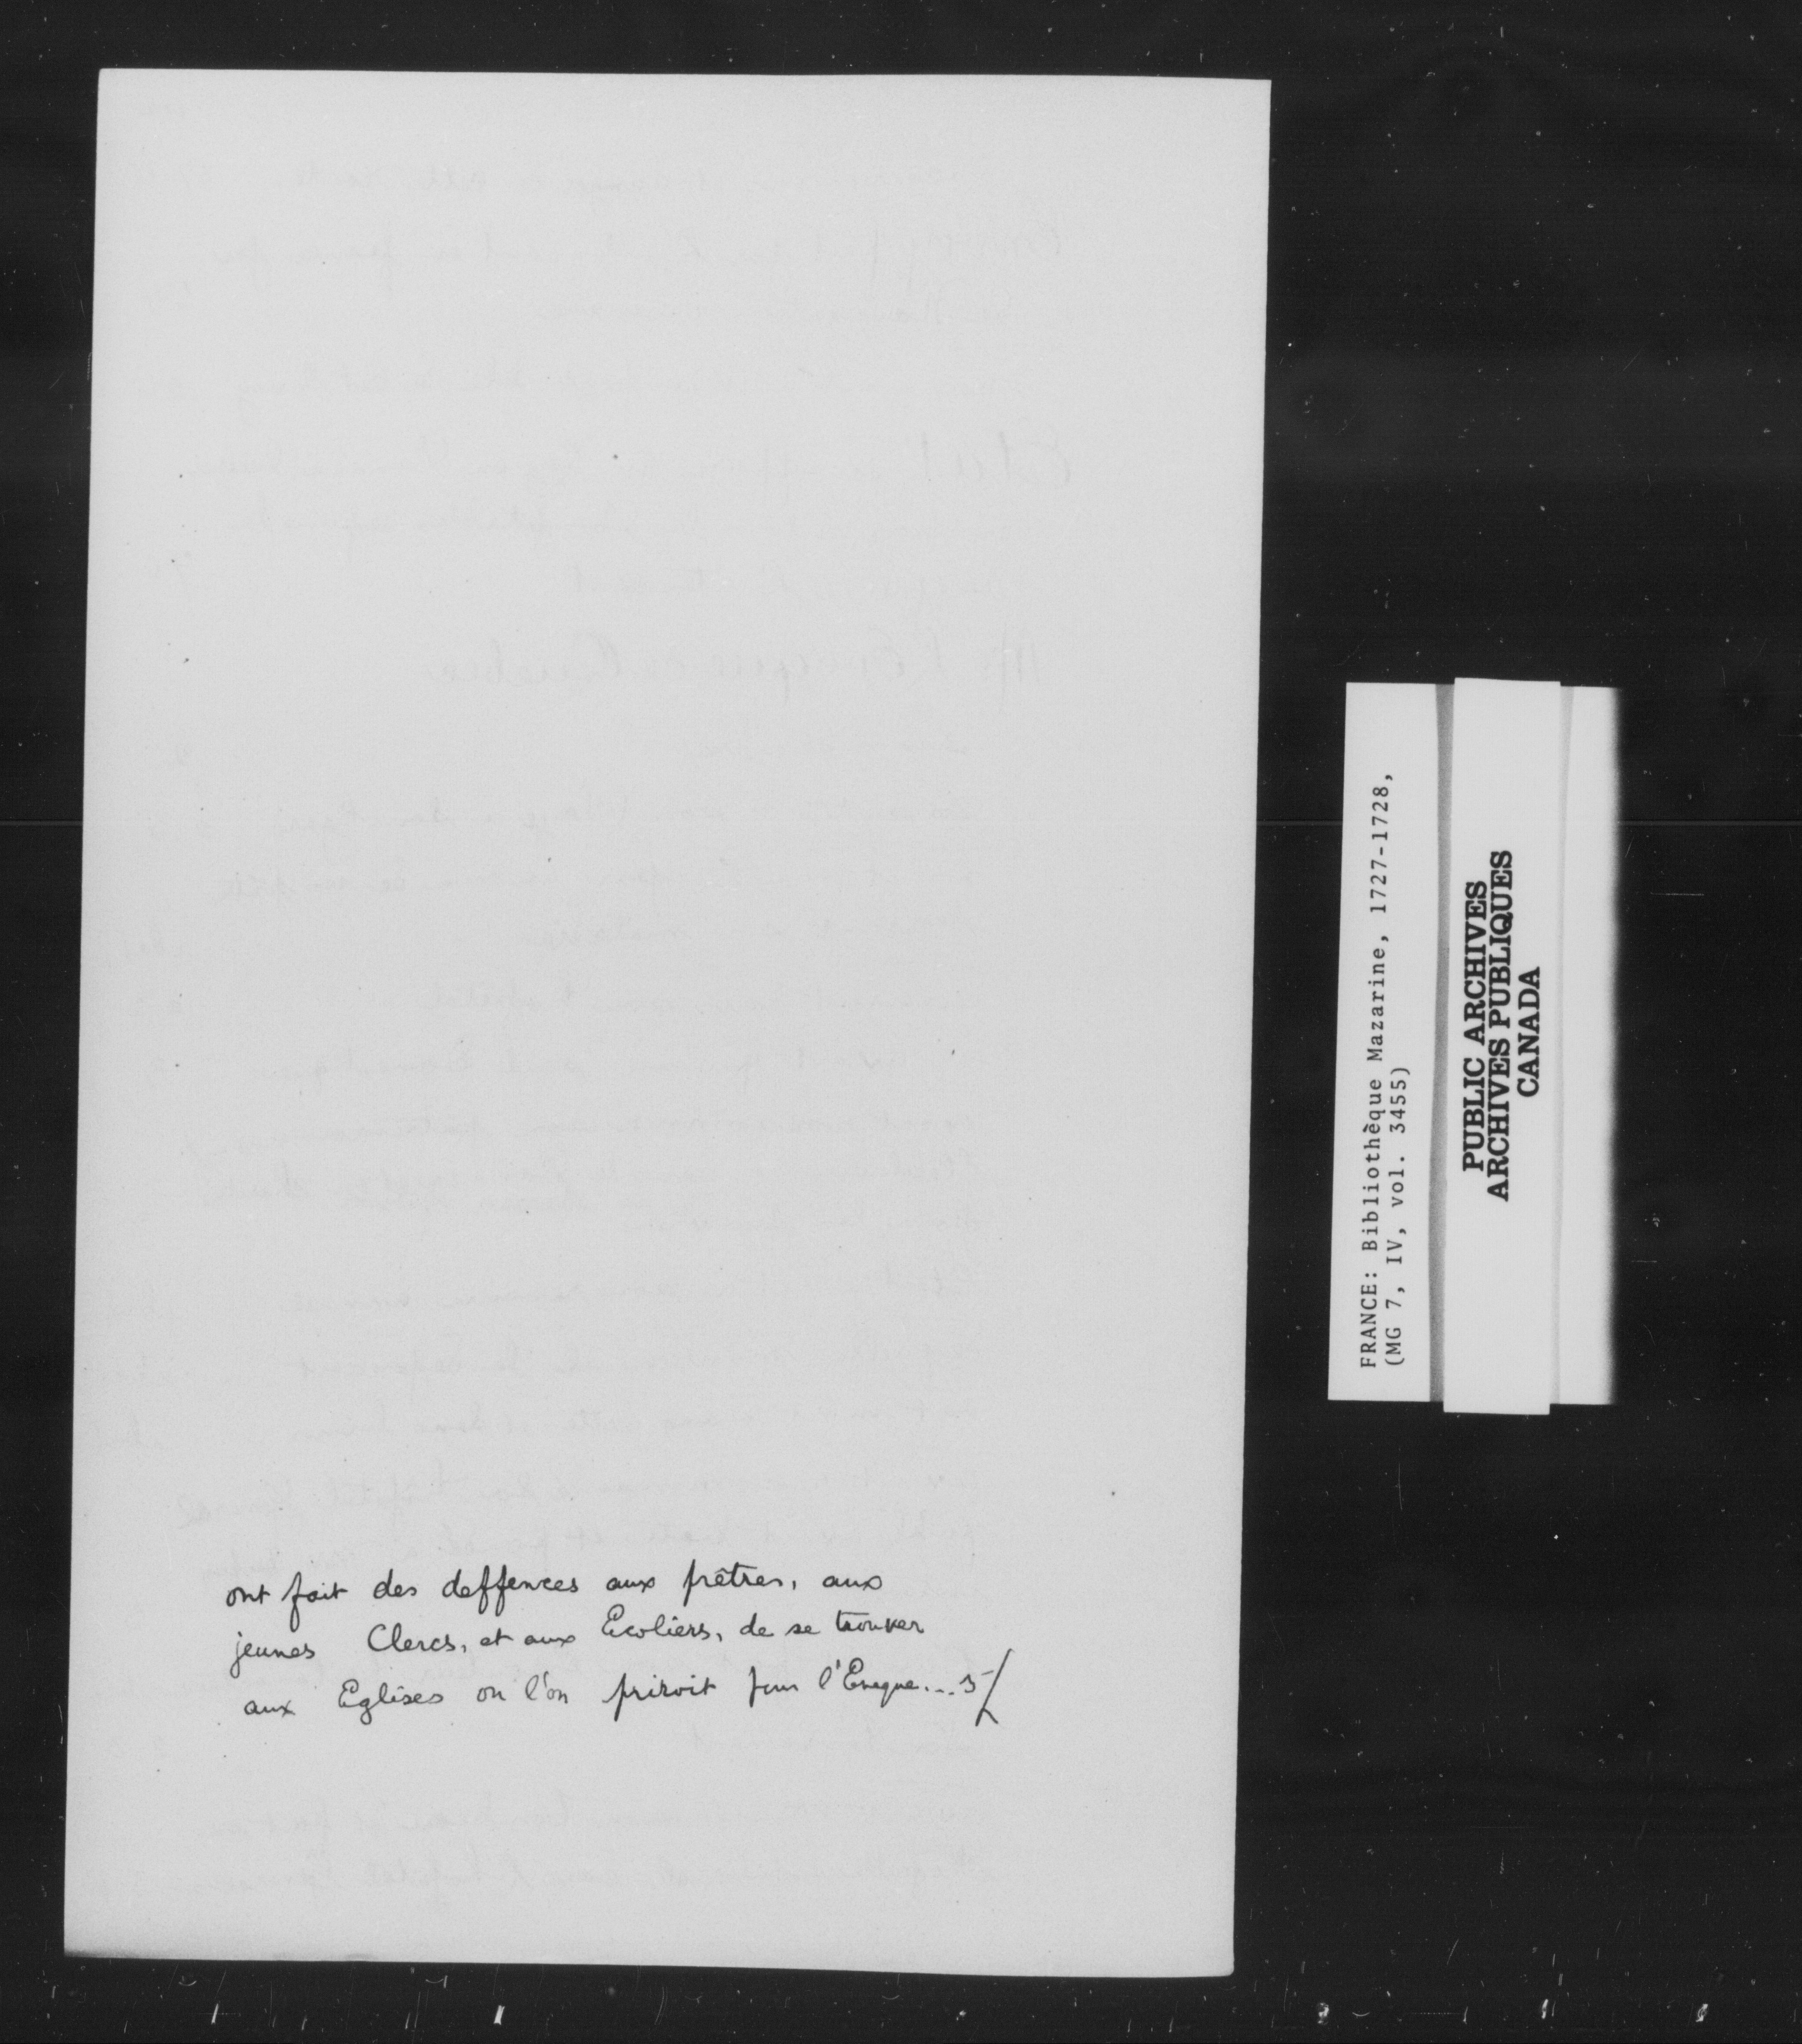 ont fait des deffences aux prêtres, aux
jeunes Clercs, et aux Ecoliers, de se trouver
aux Eglises ou l'on priroit pour l'Eveque...5/
FRANCE: Bibliothèque Mazarine, 1727-1728,
(MG 7, IV, vol. 3455)
PUBLIC ARCHIVES
ARCHIVES PUBLIQUES
CANADA